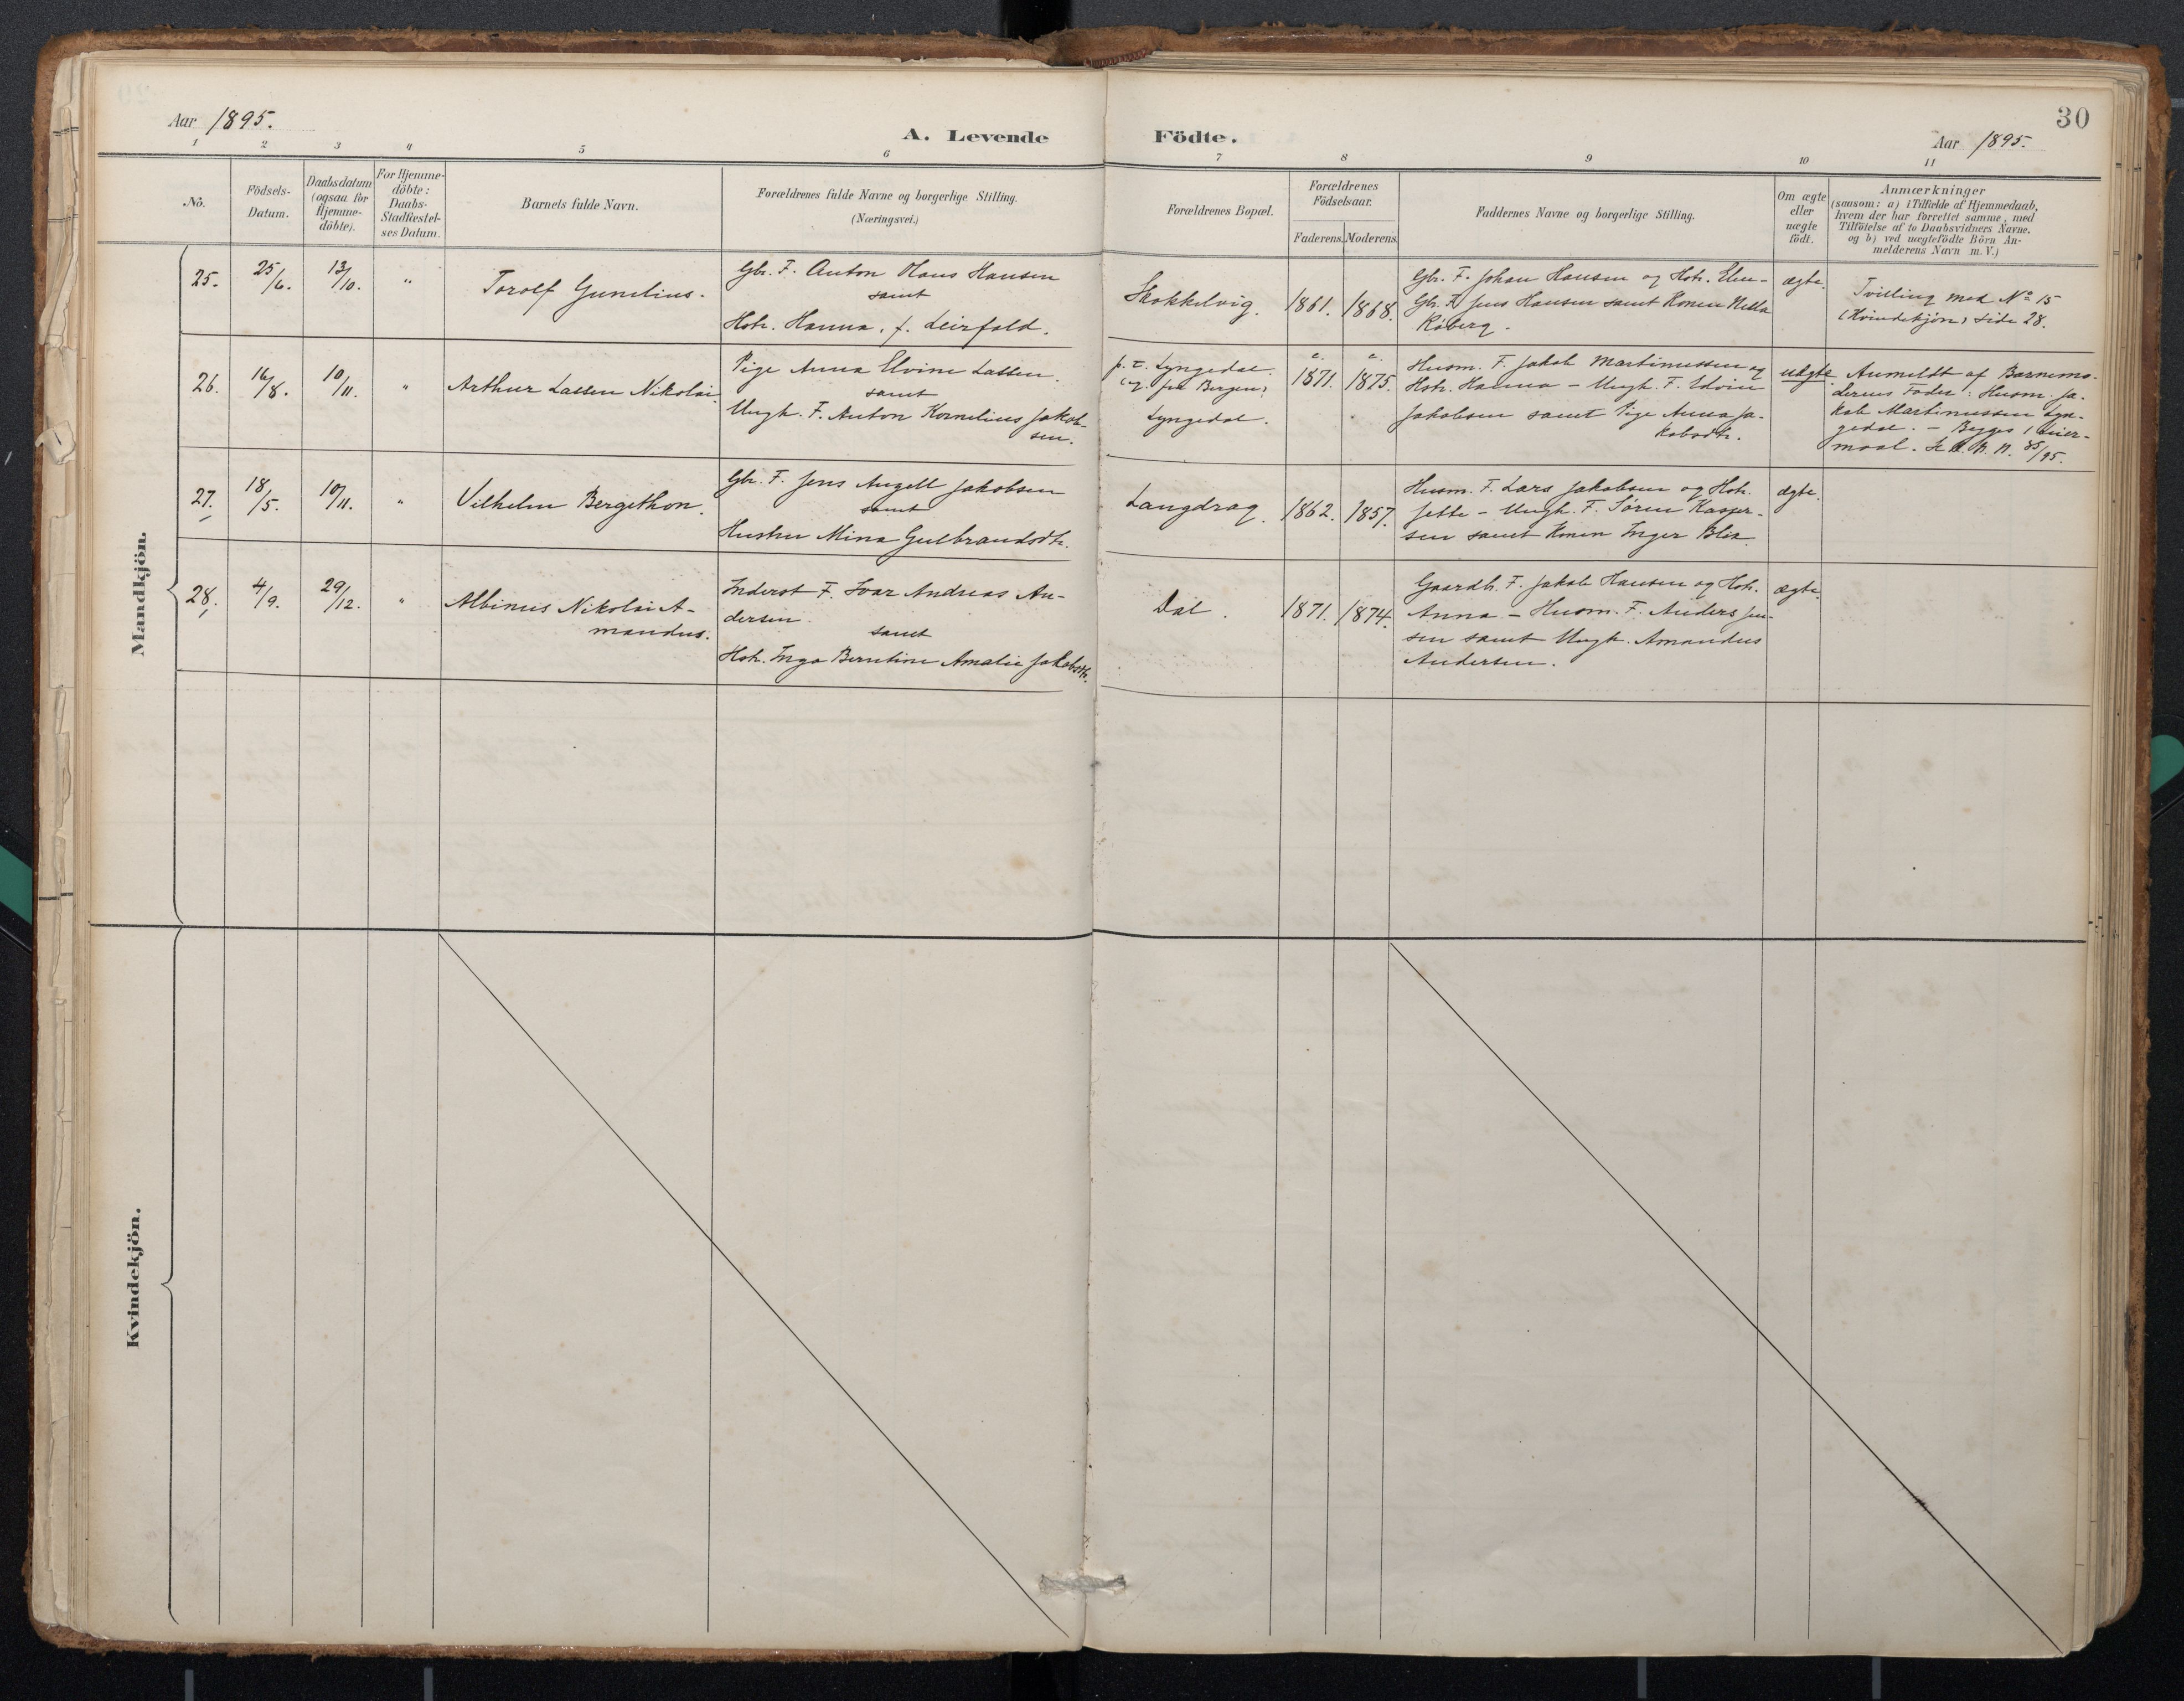 30
Aar 1895.
A. Levende Födte.
Aar 1895.
1 2 3 4 5 6 7 8 9 10 11
No.
Födsels-
Datum.
Daabsdatum
(ogsaa for
Hjemme-
döbte).
For Hjemme-
döbte:
Daabs-
Stadfæstel-
ses Datum.
Barnets fulde Navn.
Forældrenes fulde Navne og borgerlige Stilling.
(Næringsvei.)
Forældrenes Bopæl.
Forældrenes
Födselsaar.
Faderens. Moderens.
Faddernes Navne og borgerlige Stilling.
Om ægte
eller
uægte
födt.
Anmærkninger
(saasom: a) i Tilfælde af Hjemmedaab,
hvem der har forrettet samme, med
Tilföielse af to Daabsvidners Navne,
og b) ved uægtefödte Börn An-
melderens Navn m. V.)
Mandkjön.
25. 25/6. 13/10. "
Torolf Gunelius.
Gbr. F. Anton Hans Hansen
samt
Hstr. Hanna, f. Leirfald.
Skokkelvig. 1861. 1868.
Gbr. F. Johan Hansen og Hstr. Elen-
Gbr. F. Jens Hansen samt Konen Nella
Råberg.
ægte.
Tvilling med No 15
(Kvindekjön) side 28.
26. 16/8. 10/11. "
Arthur Lassen Nikolai
Pige Anna Elvine Lassen.
samt
Ungk. F. Anton Kornelius Jakob-
sen.
p. t. Lyngedal.
(eg. fra Bergen)
Lyngedal.
1871. 1875.
Husm. F. Jakob Martinussen og
Hstr. Hanna - Ungk. F. Edvin
Jakobsen samt Pige Anna Ja-
kobsdtr.
uægte
Anmeldt af Barnemo-
derens Fader: Husm. Ja-
kob Martinussen Lyn-
gedal. - Begges 1 Leier-
maal.
27. 18/5. 10/11. "
Vilhelm Bergithon.
Gbr. F. Jens Angell Jakobsen
samt
Hustru Mina Gulbrandsdtr.
Langdrag. 1862. 1857.
Husm. F. Lars Jakobsen og Hstr.
Jette - Ungk. F. Sören Kasper-
sen samt Konen Inger Blix
ægte.
28. 4/9. 29/12. "
Albinus Nikolai A-
mandus.
Inderst F. Ivar Andreas An-
dersen.
samt
Hstr. Inga Berntine Amalie Jakobsdtr.
Dal. 1871. 1874.
Gaardb. F. Jakob Hansen og Hstr.
Anna - Husm. F. Anders Jen-
sen samt Ungk. Amandus
Andersen.
ægte.
Kvindekjön.